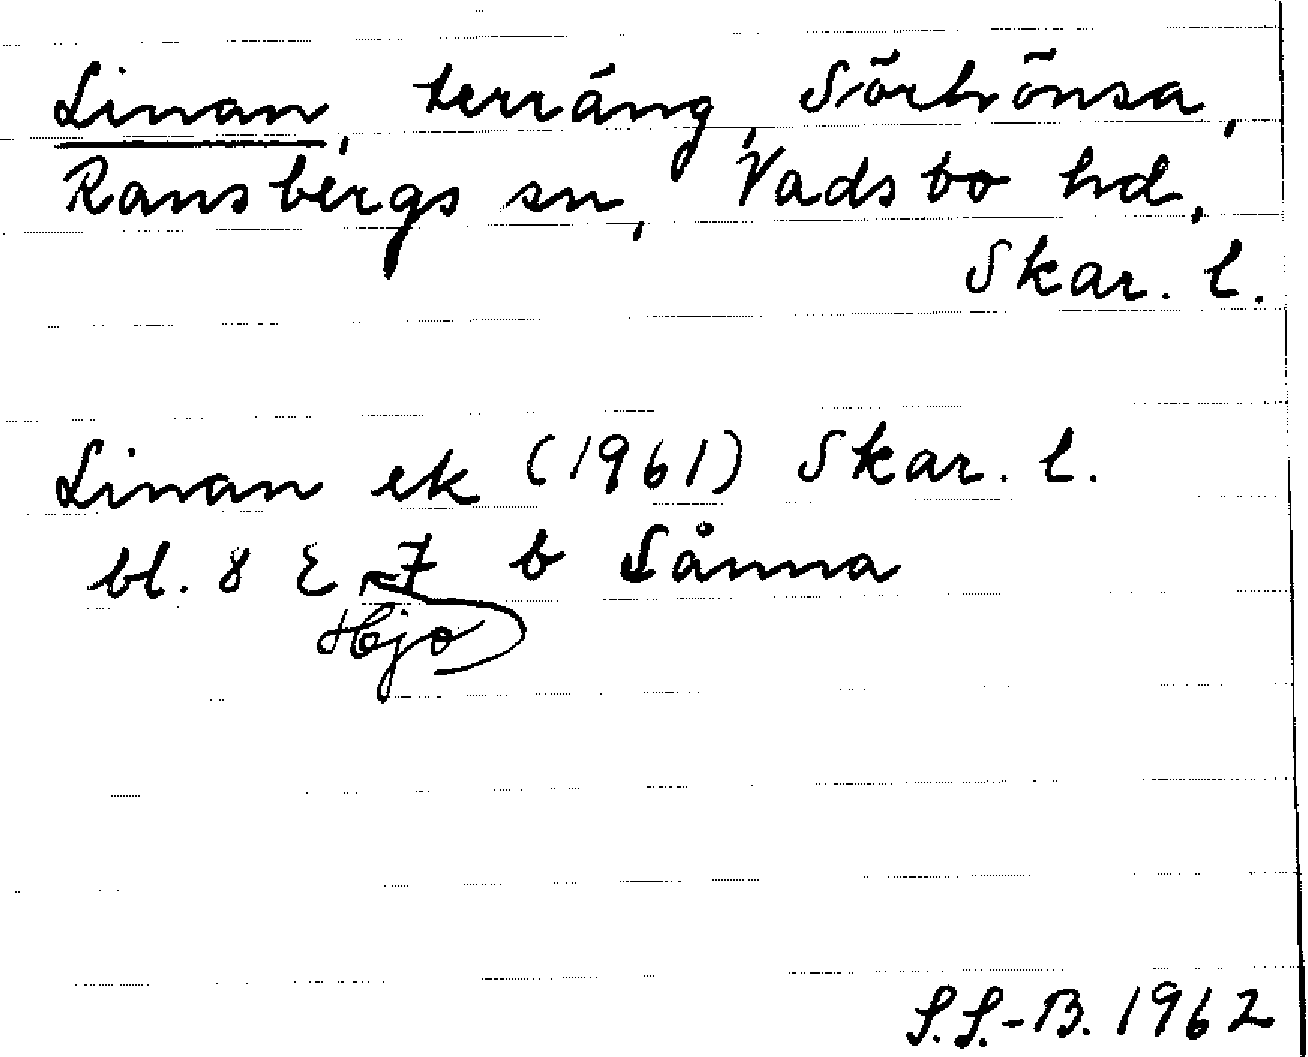 Linan, terräng, Sörhönsa,
Ransbergs sn, Vadsbo hd,
Skar. l.
Linan ek (1961) Skar. l.
bl. 8 E 7 b Sånna
Hjo
S.S.-B. 1962